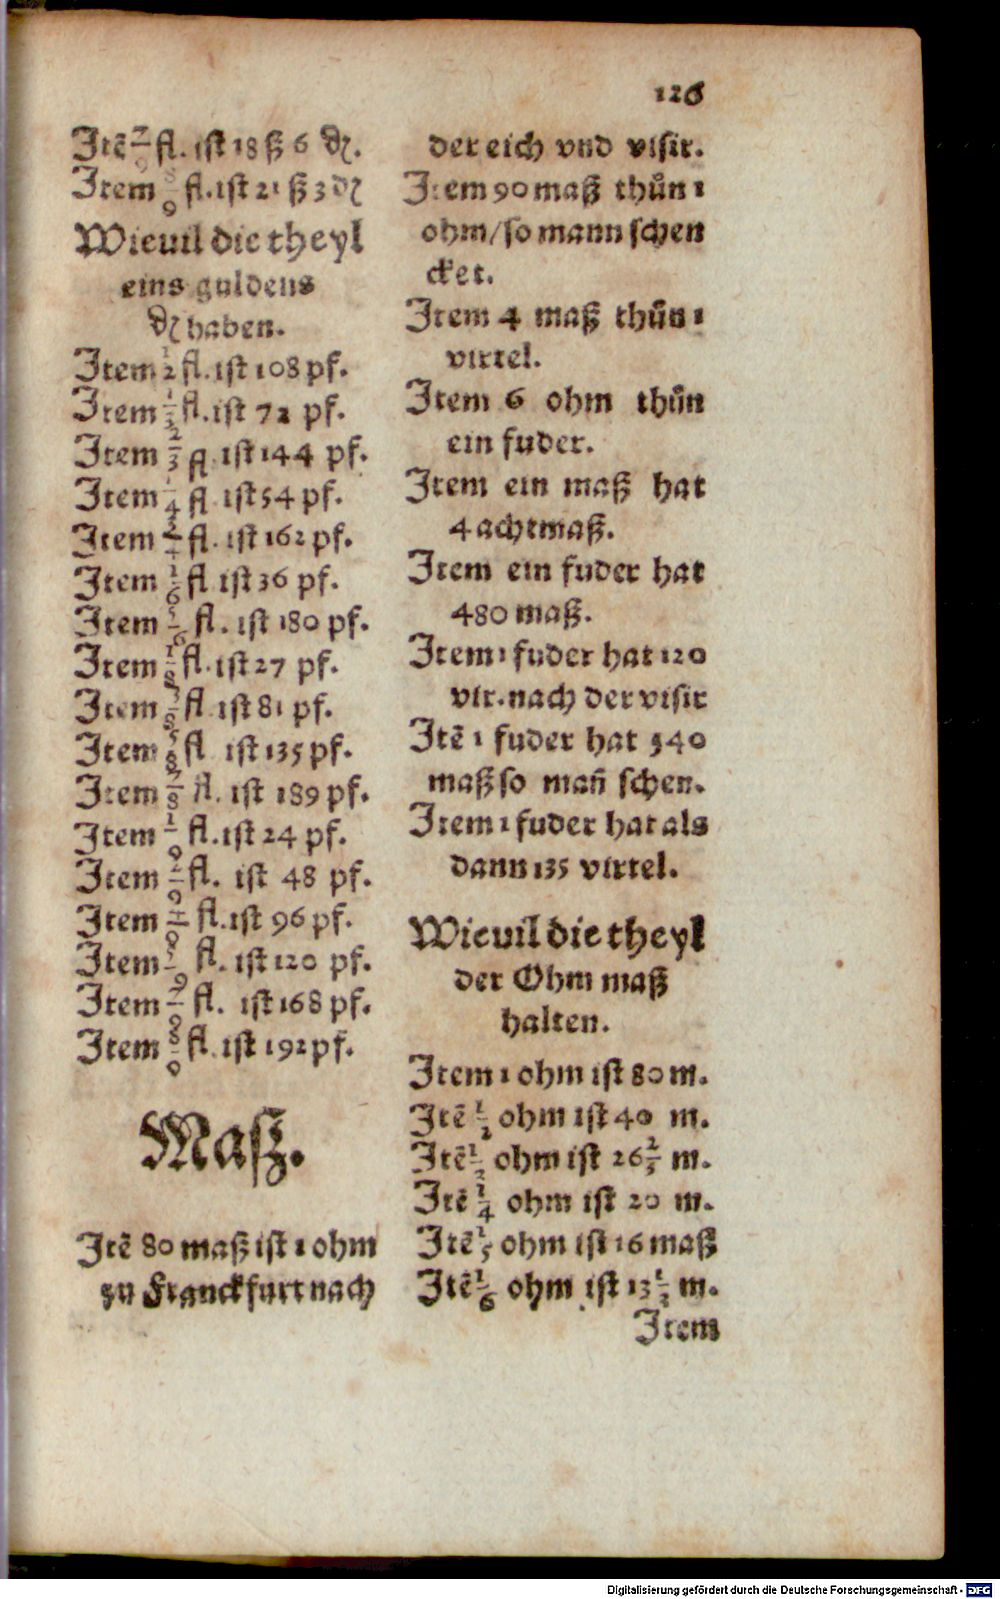 126
Itē 7/9 fl. ist 18 ß 6 ₰.
Item 8/9 fl. ist 21 ß 3 ₰
Wieuil die theyl
eins guldens
₰ haben.
Item 1/2 fl. ist 108 pf.
Item 1/3 fl. ist 72 pf.
Item 2/3 fl ist 144 pf.
Item 1/4 fl ist 54 pf.
Item 3/4 fl. ist 162 pf.
Item 1/6 fl ist 36 pf.
Item 5/6 fl. ist 180 pf.
Item 1/8 fl. ist 27 pf.
Item 3/8 fl ist 81 pf.
Item 5/8 fl ist 135 pf.
Item 7/8 fl. ist 189 pf.
Item 1/9 fl. ist 24 pf.
Item 2/9 fl. ist 48 pf.
Item 4/9 fl. ist 96 pf.
Item 5/9 fl. ist 120 pf.
Item 7/9 fl. ist 168 pf.
Item 8/9 fl. ist 192 pf.
Masz.
Itē 80 maß ist 1 ohm
zu Franckfurt nach
der eich vnd visir.
Item 90 maß thůn 1
ohm/so mann schen
cket.
Item 4 maß thůn 1
virtel.
Item 6 ohm thůn
ein fuder.
Item ein maß hat
4 achtmaß.
Item ein fuder hat
480 maß.
Item 1 fuder hat 120
vir. nach der visir
Itē 1 fuder hat 540
maß so mañ schen.
Item 1 fuder hat als
dann 135 virtel.
Wieuil die theyl
der Ohm maß
halten.
Item 1 ohm ist 80 m.
Itē 1/2 ohm ist 40 m.
Itē 1/3 ohm ist 26 2/3 m.
Itē 1/4 ohm ist 20 m.
Itē 1/5 ohm ist 16 maß
Itē 1/6 ohm ist 13 1/3 m.
Item
Digitalisierung gefördert durch die Deutsche Forschungsgemeinschaft - DFG